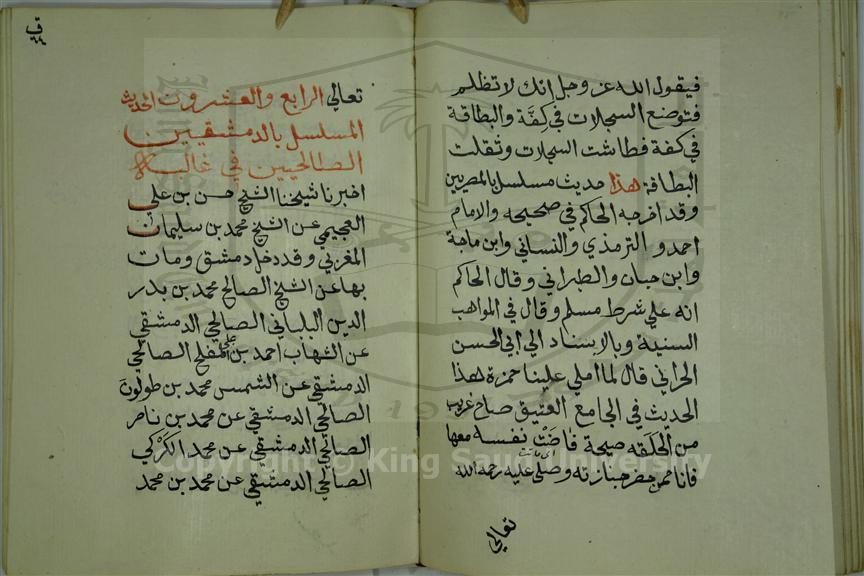 فيقول الله عز وجل انك لا تظلم
فتوضع السجلات في كِفَّة والبطاقة
في كفة فطاشت السجلات وثقلت
البطاقة هذا حديث مسلسل بالمصريين
وقد اخرجه الحاكم في صحيحه والامام
احمد و الترمذي والنسائي وابن ماجة
وابن حبان والطبراني وقال الحاكم
انه علي شرط مسلم وقال في المواهب
السنية وبالاسناد الي ابي الحسن
الحراني قال لما املي علينا حمزة هذا
الحديث في الجامع العتيق صاح غريب
من الحلقه صيحة فاضَتْ نفسه معها
اي ماتت
فانا ممن حضر جنازته وصلي عليه رحمه الله
تعالي
تعالي الرابع والعشرون الحديث
المسلسل بالدمشقيين
الصالحيين في غالبه
اخبرنا شيخنا الشيخ حسن بن علي
العجيمي عن الشيخ محمد بن سليمان
المغربي وقد دخل دمشق ومات
بها عن الشيخ الصالح محمد بن بدر
الدين البلباني الصالحي الدمشقي
عن الشهاب احمد بن علي المفلح الصالحي
الدمشقي عن الشمس محمد بن طولون
الصالحي الدمشقي عن محمد بن ناصر
الصالحي الدمشقي عن محمد الكركي
الصالحي الدمشقي عن محمد بن محمد
Copyright © King Saud University